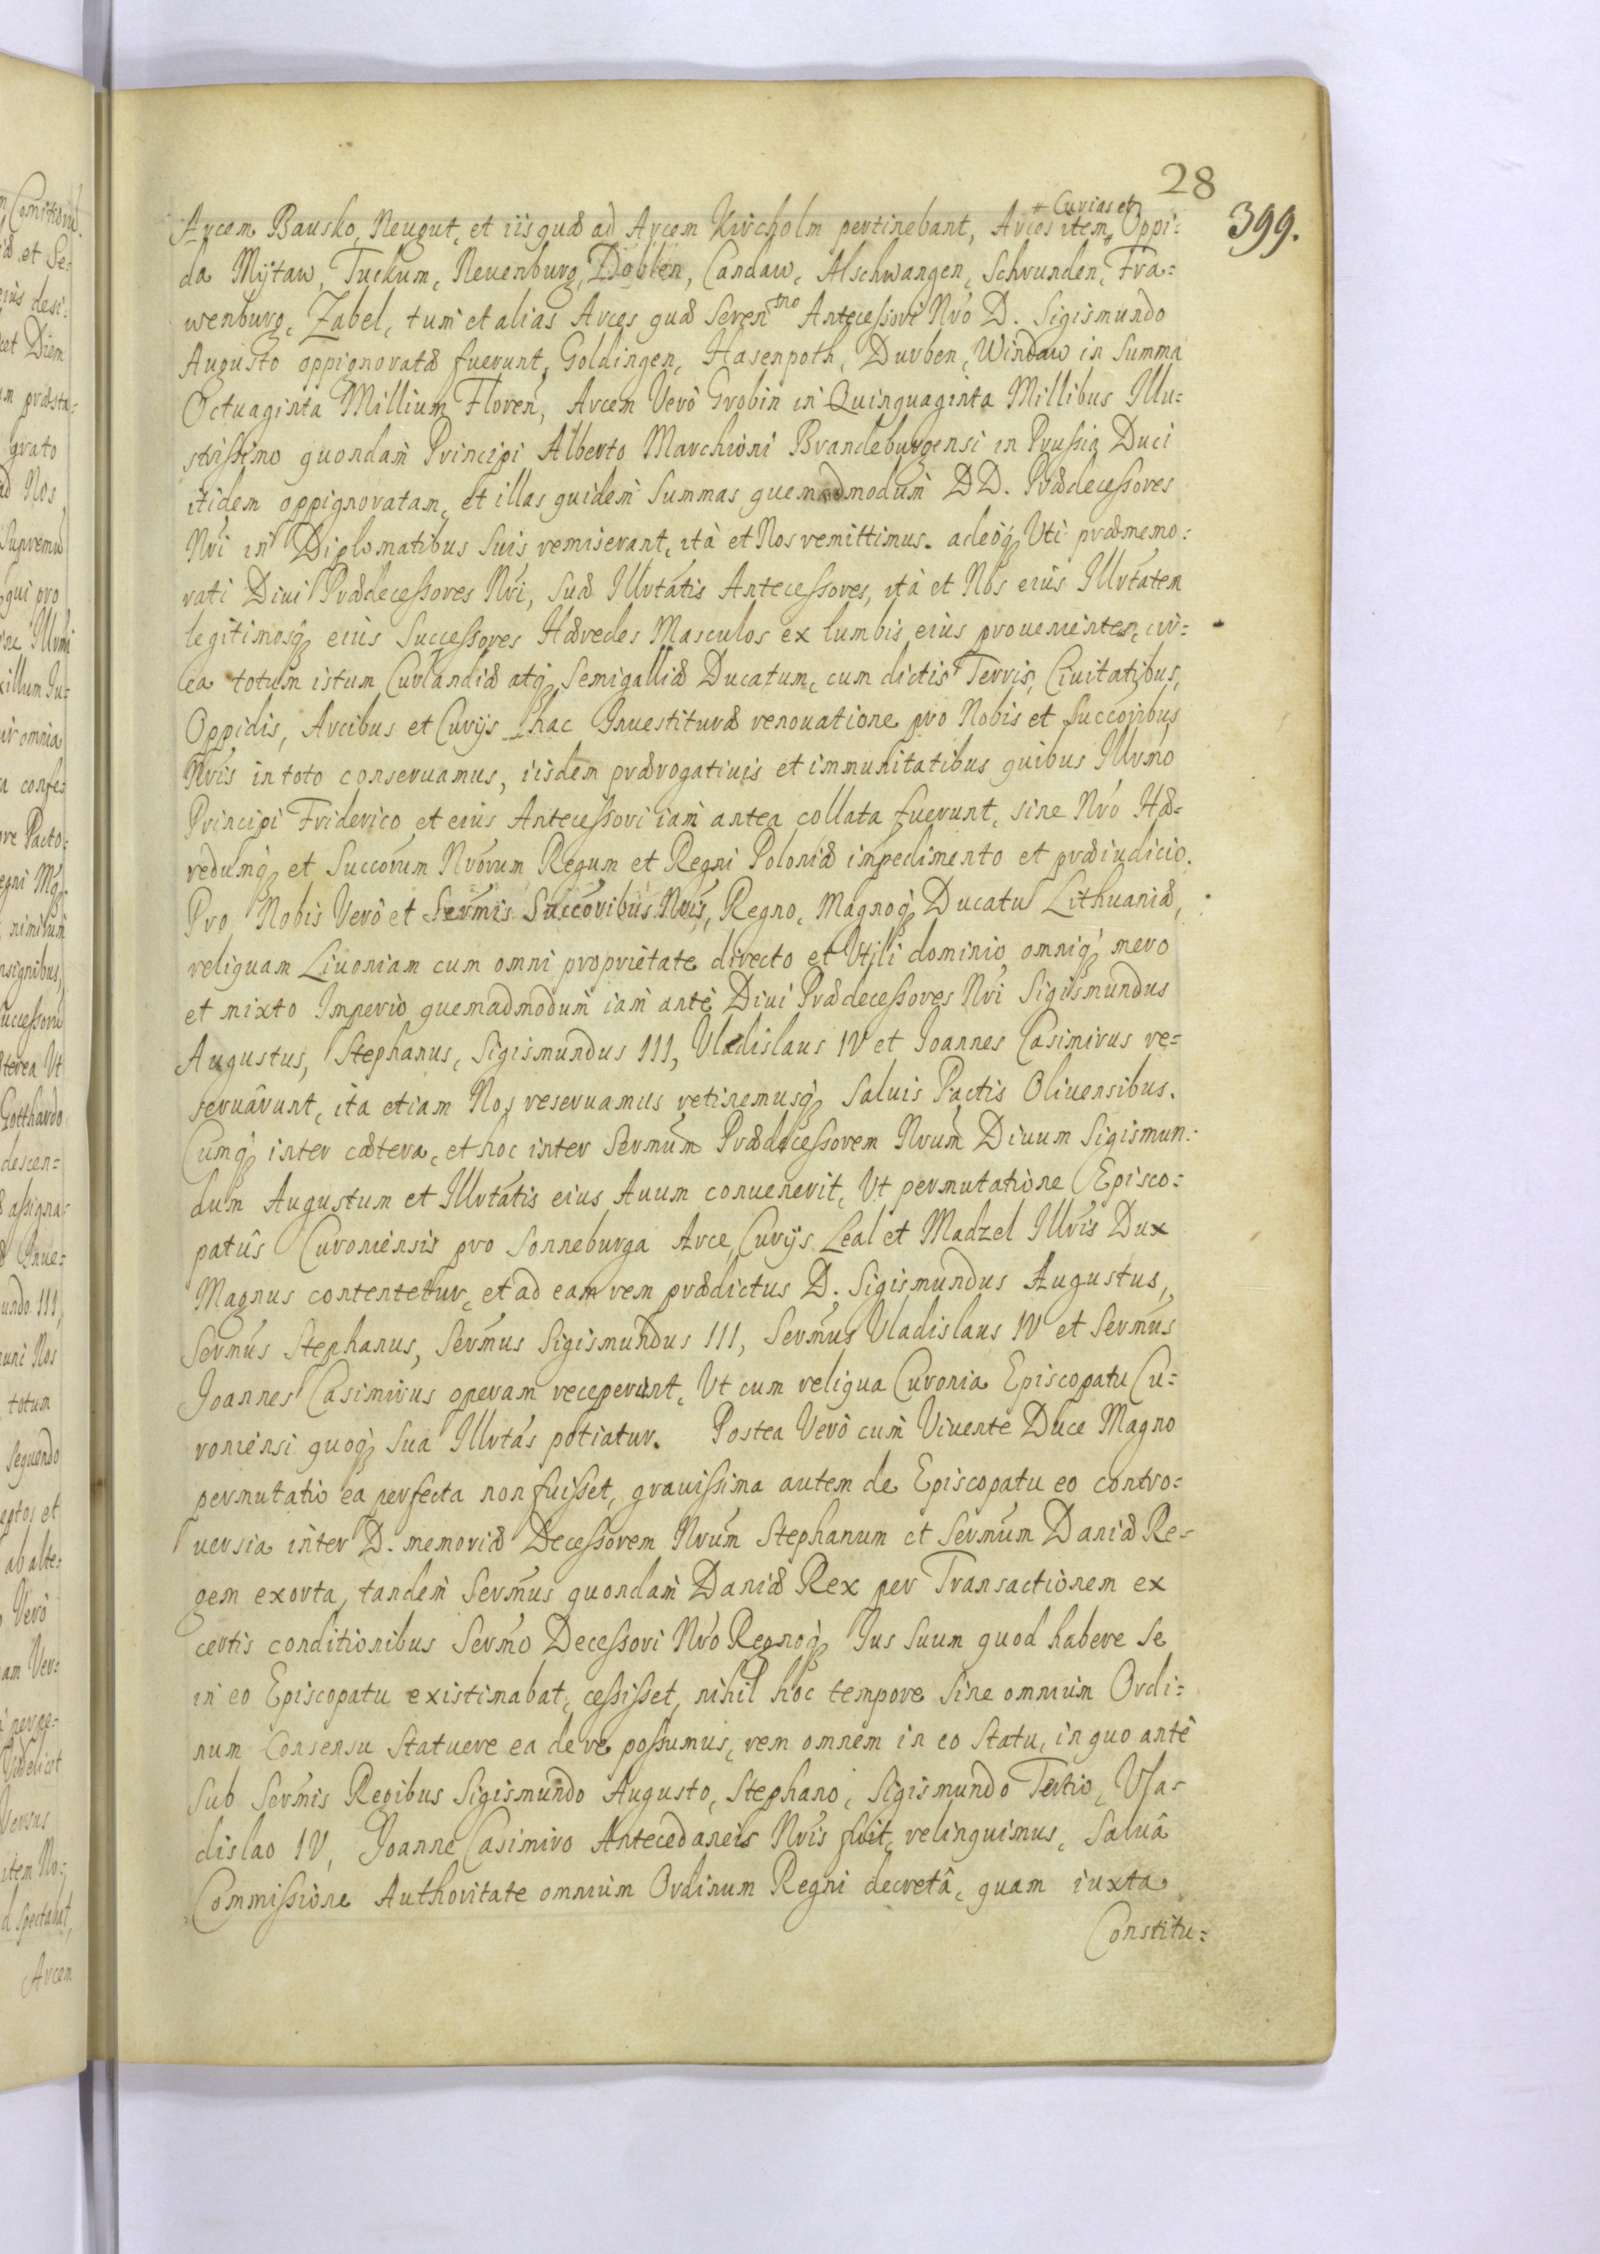 28
399.
Arcem Bausko, Neugut, et iis quæ ad Arcem Kircholm pertinebant, Arces item # Curias et Oppi:
da Mÿtaw, Tuckum, Neuenburg, Doblen, Candaw, Alschwangen, Schrunden, Fra=
wenburg, Zabel, tum et alias Arces quæ Seren^mo Antecessori Nr̃o D. Sigismundo
Augusto oppignoratæ fuerunt, Goldingen, Hasenpoth, Durben, Windaw in Summa
Octuaginta Millium Floren̄, Arcem Verò Grobin in Quinquaginta Millibus Illu=
strissimo quondam Principi Alberto Marchioni Brandeburgensi in Prussia Duci
itidem oppignoratam, et illas quidem Summas quemadmodum DD. Prædecessores
Nr̃i in Diplomatibus Suis remiserant, ità et Nos remittimus. adeoq; Uti præmemo:
rati Diui Prædecessores Nr̃i, Suæ Illrtatis Antecessores, ità et Nos eius Illrtatem
legitimosq; eius Successores Hæredes Masculos ex lumbis eius prouenientes, cir=
ca totum istum Curlandiæ atq; Semigalliæ Ducatum, cum dictis Terris, Ciuitatibus,
Oppidis, Arcibus et Curijs hac Inuestituræ renouatione pro Nobis et Succoribus
Nr̃is in toto conseruamus, iisdem prærogatiuis et immunitatibus quibus Illr̃mo
Principi Friderico et eius Antecessori iam antea collata fuerunt, sine Nr̃o Hæ=
redumq; et Succorum Nr̃orum Regum et Regni Poloniæ impedimento et præiudicio.
Pro Nobis Verò et Sermis Succoribus Nr̃is, Regno, Magnoq; Ducatu Lithuaniæ,
reliquam Liuoniam cum omni proprietate directo et Utili dominio omniq; mero
et mixto Imperio quemadmodum iam antè Diui Prædecessores Nr̃i Sigismundus
Augustus, Stephanus, Sigismundus III, Vladislaus IV et Joannes Casimirus re=
seruârunt, ita etiam Nos reseruamus retinemusq; Saluis Pactis Oliuensibus.
Cumq; inter cætera, et hoc inter Sermum Prædecessorem Nr̃um Diuum Sigismun:
dum Augustum et Illrtatis eius Auum conuenerit, Ut permutatione Episco:
patûs Curoniensis pro Sonneburga Arce, Curijs Leal et Madzel Illris Dux
Magnus contentetur, et ad eam rem prædictus D. Sigismundus Augustus,
Sermus Stephanus, Sermus Sigismundus III, Sermus Vladislaus IV et Sermus
Joannes Casimirus operam receperunt, Ut cum reliqua Curonia Episcopatu Cu=
roniensi quoq; Sua Illrtas potiatur. Postea Verò cum Viuente Duce Magno
permutatio ea perfecta non fuisset, grauissima autem de Episcopatu eo contro:
uersia inter D. memoriæ Decessorem Nr̃um Stephanum et Sermum Daniæ Re=
gem exorta, tandem Sermus quondam Daniæ Rex per Transactionem ex
certis conditionibus Sermo Decessori Nr̃o Regnoq; Jus Suum quod habere Se
in eo Episcopatu existimabat, cessisset, nihil hoc tempore Sine omnium Ordi:
num Consensu Statuere ea de re possumus, rem omnem in eo Statu, in quo antè
Sub Sermis Regibus Sigismundo Augusto, Stephano, Sigismundo Tertio, Vla=
dislao IV, Joanne Casimiro Antecedaneis Nr̃is fuit, relinquimus, Saluâ
Commissione Authoritate omnium Ordinum Regni decretâ, quam iuxta
Constitu=